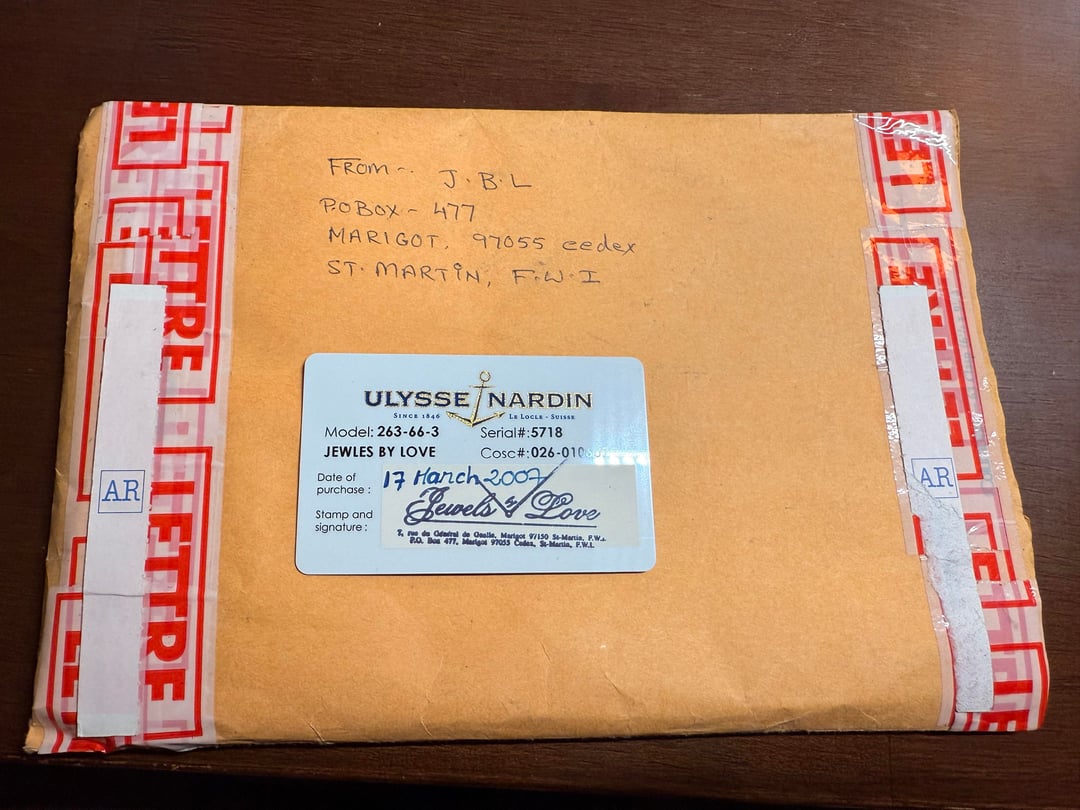 FROM - J.B.L
P.O BOX - 477
MARIGOT. 97055 cedex
ST. MARTIN, F.W.I
ULYSSE NARDIN
SINCE 1846 LE LOCLE - SUISSE
Model: 263-66-3 Serial#:5718
JEWLES BY LOVE Cosc#:026-010
Date of purchase : 17 March 2007
Stamp and signature : Jewels Love
7, rue du Général de Gaulle, Marigot 97150 St-Martin, F.W.I.
P.O. Box 477, Marigot 97055 Cedex, St-Martin, F.W.I.
AR
AR
LETTRE
LETTRE